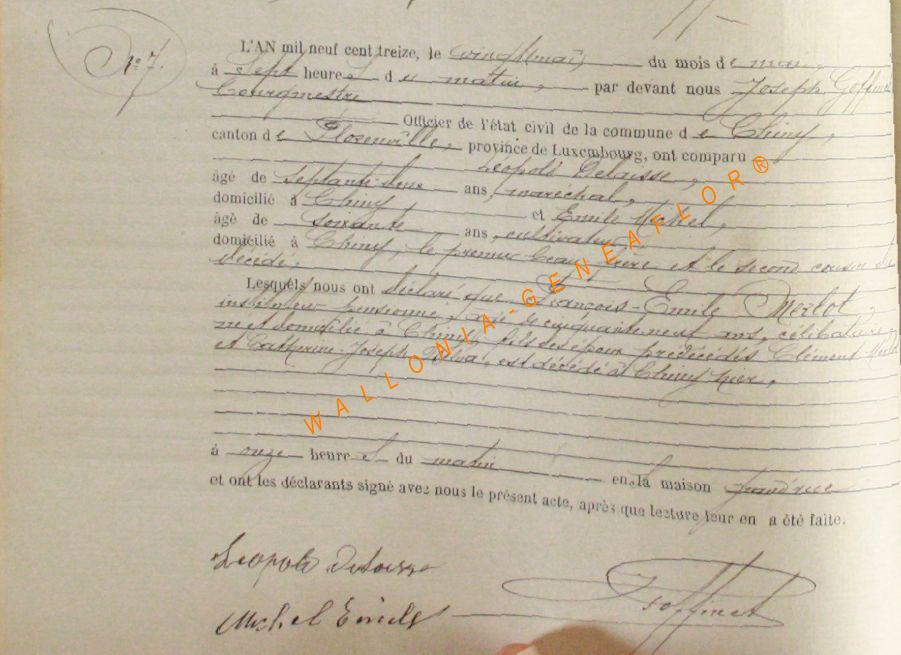 No 7.
L'AN mil neuf cent treize, le vingt mai, du mois de mai,
à sept heures du matin, par devant nous Joseph Goffinet
Bourgmestre
Officier de l'état civil de la commune de Chiny,
canton de Florenville, province de Luxembourg, ont comparu
Léopold Delaisse,
âgé de septante deux ans, maréchal,
domicilié à Chiny et Emile Michel,
âgé de soixante ans, cultivateur
domicilié à Chiny, le premier beau frère et le second cousin du
décédé.
Lesquels nous ont déclaré que François-Emile Merlot,
instituteur pensionné, âgé de cinquante neuf ans, célibataire,
né et domicilié à Chiny, fils des époux prédécédés Clément Merlot
et Catherine-Joseph est décédé à Chiny hier,
à onze heures du matin en la maison
et ont les déclarants signé avec nous le présent acte, après que lecture leur en a été faite.
Léopold Delaisse
Michel Emile
JGoffinet
WALLONIA-GENEAFLOR®